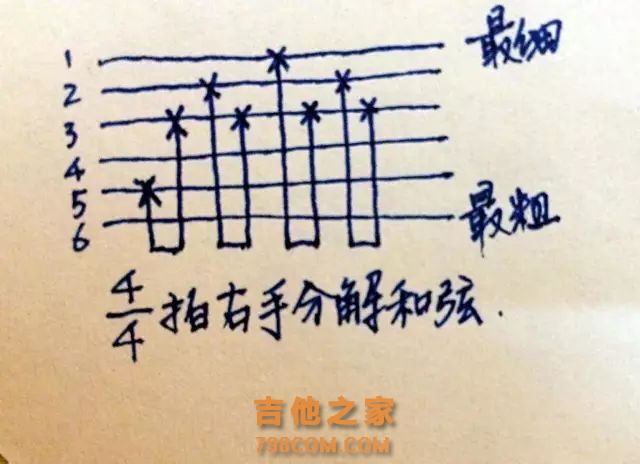 1 最细
2
3
4
5
6 最粗
4/4 拍右手分解和弦.
吉他之家
798COM.COM